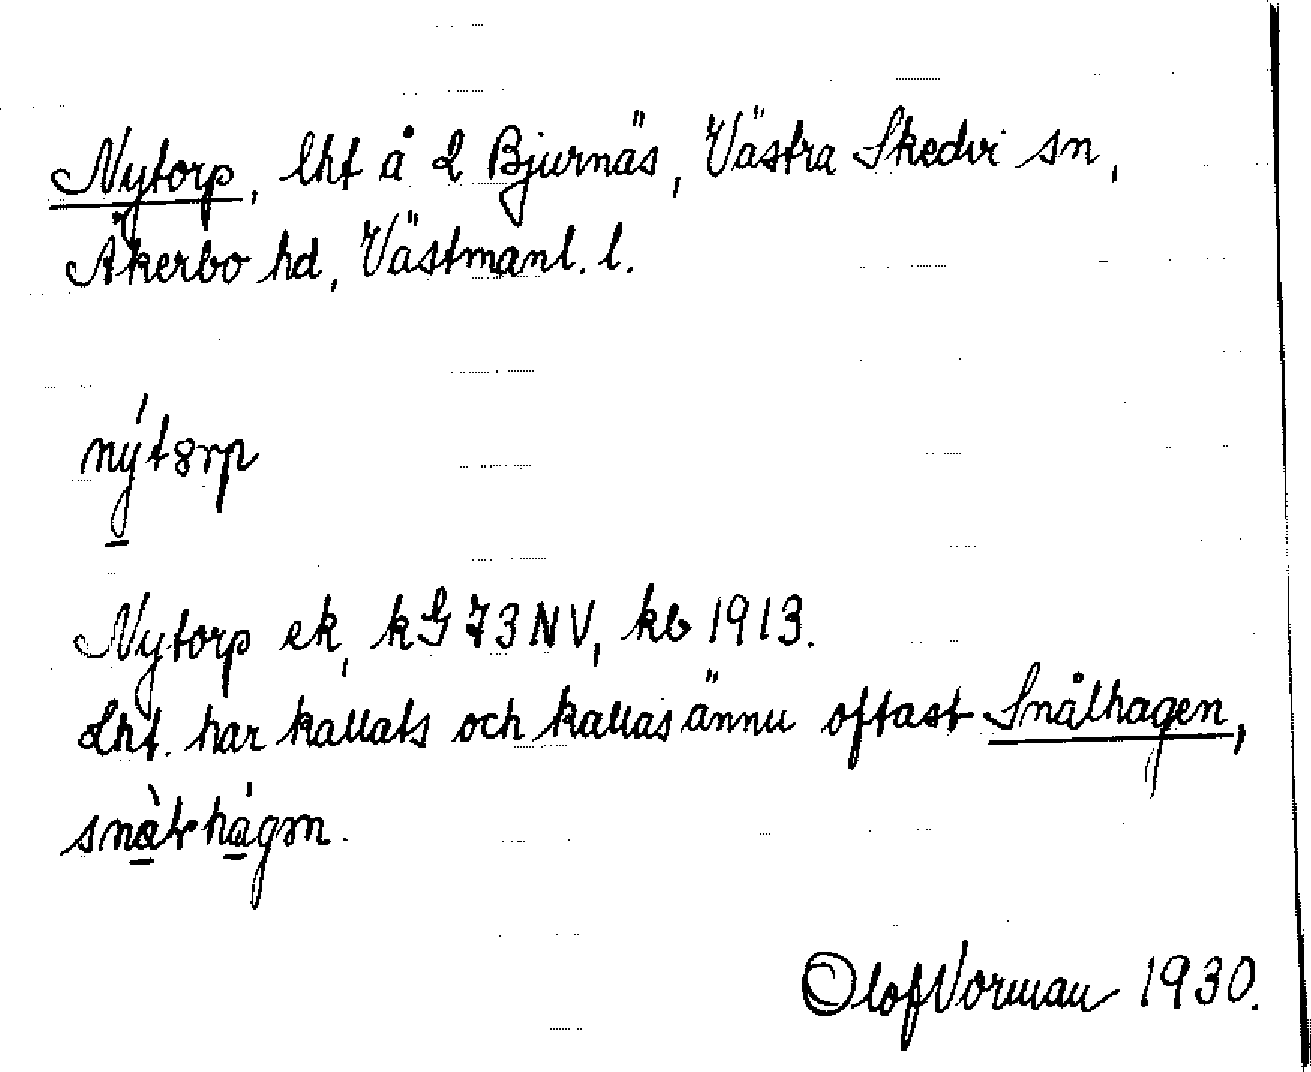 Nytorp, lht å 2 Bjurnäs, Västra Skedvi sn,
Åkerbo hd, Västmanl. l.
nýt8rp
Nytorp ek, kG 73 NV, kb 1913.
Lht. har kallats och kallas ännu oftast Snålhagen,
Olof Vorman 1930.